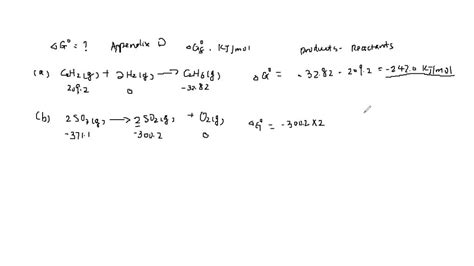 ΔG° = ? Appendix D ΔG°f, KJ/mol Products - Reactants
(a) C2H2(g) + 2H2(g) → C2H6(g) ΔG° = - 32.82 - 209.2 = -242.0 KJ/mol
209.2 0 -32.82
(b) 2SO3(g) → 2SO2(g) + O2(g) ΔG° = -300.2 x 2
-371.1 -300.2 0